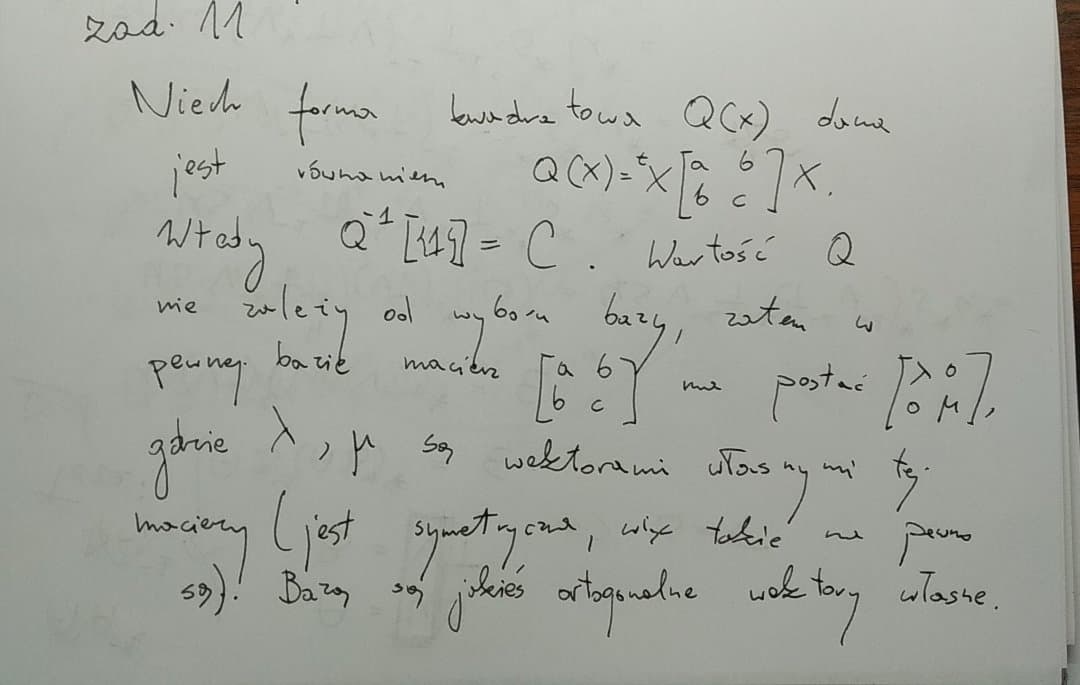 zad. 11
Niech forma kwadratowa Q(x) dana
jest równaniem Q(X) = ᵗX [a b; b c] X.
Wtedy Q⁻¹[{1}] = C. Wartość Q
nie zależy od wyboru bazy, zatem w
pewnej bazie macierz [a b; b c] ma postać [λ 0; 0 μ],
gdzie λ, μ są wektorami własnymi tej
macierzy (jest symetryczna, więc takie na pewno
są). Bazą są jakieś ortogonalne wektory własne.